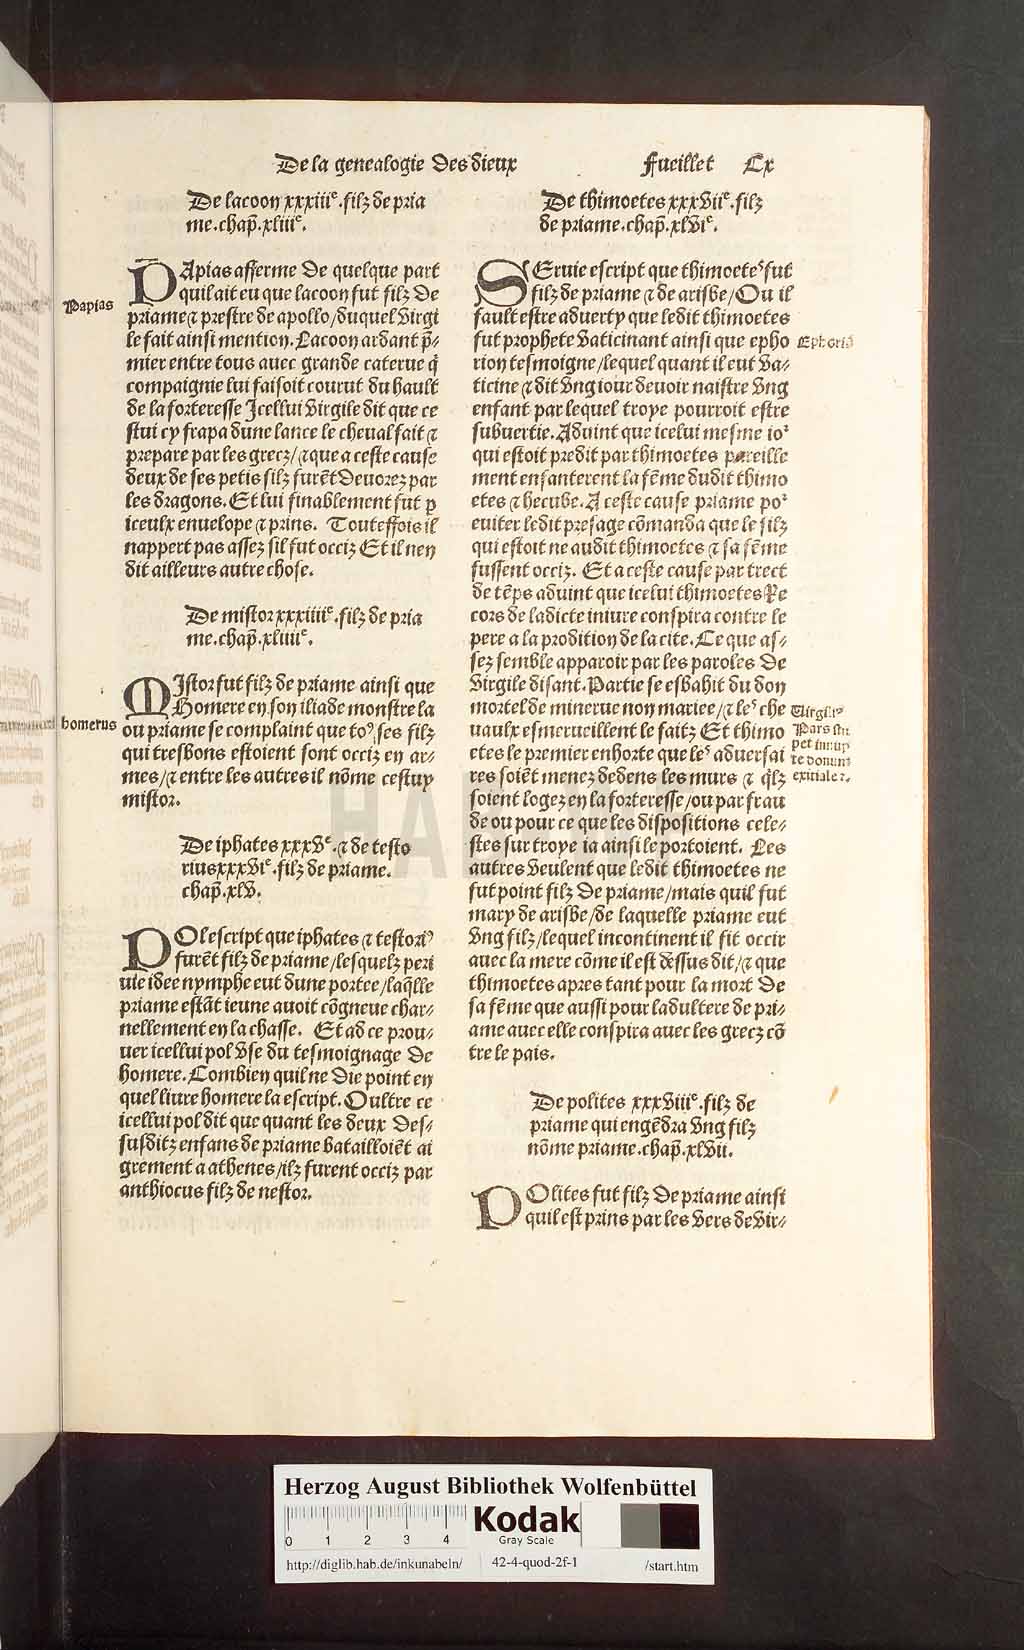 De la genealogie des dieux
Fueillet Cx
De lacoon xxxiiiᵉ. filz de pria
me. chap̄. xliiiᵉ.
Papias
PApias afferme de quelque part
quil ait eu que lacoon fut filz de
priame ⁊ prestre de apollo/duquel virgi
le fait ainsi mention. Lacoon ardant p̄-
mier entre tous auec grande caterue q̄
compaignie lui faisoit courut du hault
de la forteresse Icellui virgile dit que ce
stui cy frapa dune lance le cheual fait ⁊
prepare par les grecz/⁊ que a ceste cause
deux de ses petis filz furēt deuorez par
les dragons. Et lui finablement fut p
iceulx enuelope ⁊ prins. Touteffois il
nappert pas assez sil fut occiz Et il nen
dit ailleurs autre chose.
De mistor xxxiiiiᵉ. filz de pria
me. chap̄. xliiiiᵉ.
homerus
MIstor fut filz de priame ainsi que
Homere en son iliade monstre la
ou priame se complaint que toꝰ ses filz
qui tresbons estoient sont occiz en ar-
mes/⁊ entre les autres il nōme cestuy
mistor.
De iphates xxxvᵉ. ⁊ de testo
rius xxxviᵉ. filz de priame.
chap̄. xlv.
POl escript que iphates ⁊ testoriꝰ
furēt filz de priame/lesquelz peri
uie idee nymphe eut dune portee/laq̄lle
priame estāt ieune auoit cōgneue char-
nellement en la chasse. Et ad ce prou-
uer icellui pol vse du tesmoignage de
homere. Combien quil ne die point en
quel liure homere la escript. Oultre ce
icellui pol dit que quant les deux des-
susditz enfans de priame batailloiēt ai
grement a athenes/ilz furent occiz par
anthiocus filz de nestor.
De thimoetes xxxviiᵉ. filz
de priame. chap̄. xlviᵉ.
SEruie escript que thimoeteˢ fut
filz de priame ⁊ de arisbe/Ou il
fault estre aduerty que ledit thimoetes
fut prophete vaticinant ainsi que epho
rion tesmoigne/lequel quant il eut va-
ticine ⁊ dit vng iour deuoir naistre vng
enfant par lequel troye pourroit estre
subuertie. Aduint que icelui mesme ioᷣ
qui estoit predit par thimoetes pareille
ment enfanterent la fēme dudit thimo
etes ⁊ hecube. A ceste cause priame poᷣ
euiter ledit presage cōmanda que le filz
qui estoit ne audit thimoetes ⁊ sa fēme
fussent occiz. Et a ceste cause par trect
de tēps aduint que icelui thimoetes Re
cors de ladicte iniure conspira contre le
pere a la prodition de la cite. Ce que as-
sez semble apparoir par les paroles de
virgile disant. Partie se esbahit du don
mortel de minerue non mariee/⁊ leˢ che
uaulx esmerueillent le faitz Et thimo
etes le premier enhorte que leˢ aduersai
res soiēt menez dedens les murs ⁊ q̄lz
soient logez en la forteresse/ou par frau
de ou pour ce que les dispositions cele-
stes sur troye ia ainsi le portoient. Les
autres veulent que ledit thimoetes ne
fut point filz de priame/mais quil fut
mary de arisbe/de laquelle priame eut
vng filz/lequel incontinent il fit occir
auec la mere cōme il est dessus dit/⁊ que
thimoetes apres tant pour la mort de
sa fēme que aussi pour ladultere de pri-
ame auec elle conspira auec les grecz cō
tre le pais.
Ephoriō
Virgiliꝰ
Pars stu
pet innup
te donum
exitiale ⁊.
De polites xxxviiiᵉ. filz de
priame qui engēdra vng filz
nōme priame. chap̄. xlvii.
POlites fut filz de priame ainsi
quil est prins par les vers de vir-
HAB WF
Herzog August Bibliothek Wolfenbüttel
0 1 2 3 4
Kodak
Gray Scale
http://diglib.hab.de/inkunabeln/ 42-4-quod-2f-1 /start.htm